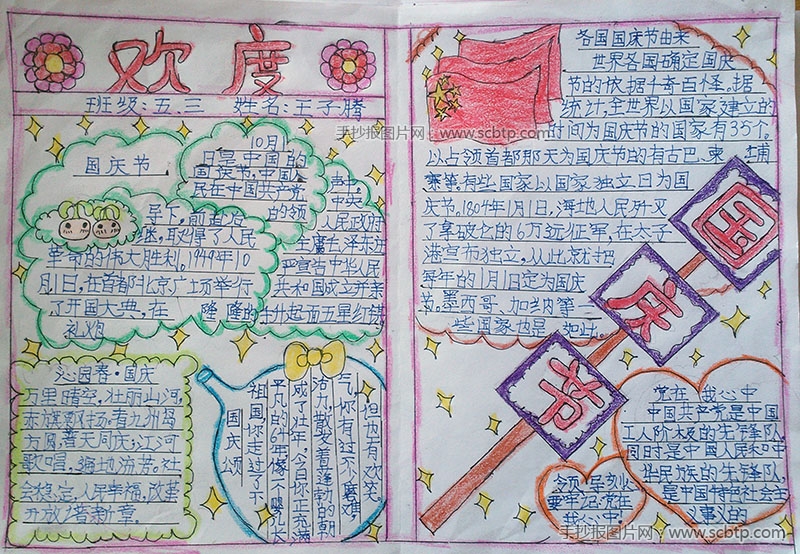 欢度
班级:五.三 姓名:王子腾
手抄报图片网 - www.scbtp.com
国庆节
10月1
日是中国的
国庆节,中国人
民在中国共产党
的领
导下,前
取得了人民
革命的伟大胜利。1949年10
月1日,在首都北京广场举行
了开国大典,在 隆隆的
礼炮
中央
人民政府
主席毛泽东庄
严宣告中华人民
共和国成立并亲
手升起
面五星红旗
沁园春·国庆
万里晴空,壮丽山河,
赤旗飘扬。看九州
普天同庆;江河
歌唱,遍地流芳。社
会稳定,人民幸福,改革
开放谱新章。
国庆颂
祖国你走过了不
平凡的64年像一
成了壮年。今日你正充满
散发着蓬勃的朝
气,你有过不少磨难
但也有欢笑。
各国国庆节由来
世界各国确定国庆
节的依据千奇百怪。据
统计,全世界以国家建立的
时间为国庆节的国家有35个。
以占领首都那天为国庆节的有古巴、柬埔
寨等。有些国家以国家独立日为国
庆节。1804年1月1日,海地人民歼灭
了拿破仑的6万远征军,在太子
港宣布独立,从此就把
每年的1月1日定为国庆
节。墨西哥、加纳等
一些国家也是 如此。
国
庆
节
党在我心中
中国共产党是中国
工人阶级的先锋队,
同时是中国人民和中
华民族的先锋队,
是中国特色社会主
义事业的
领导
要牢记,党在
我心中
手抄报图片网 - www.scbtp.com